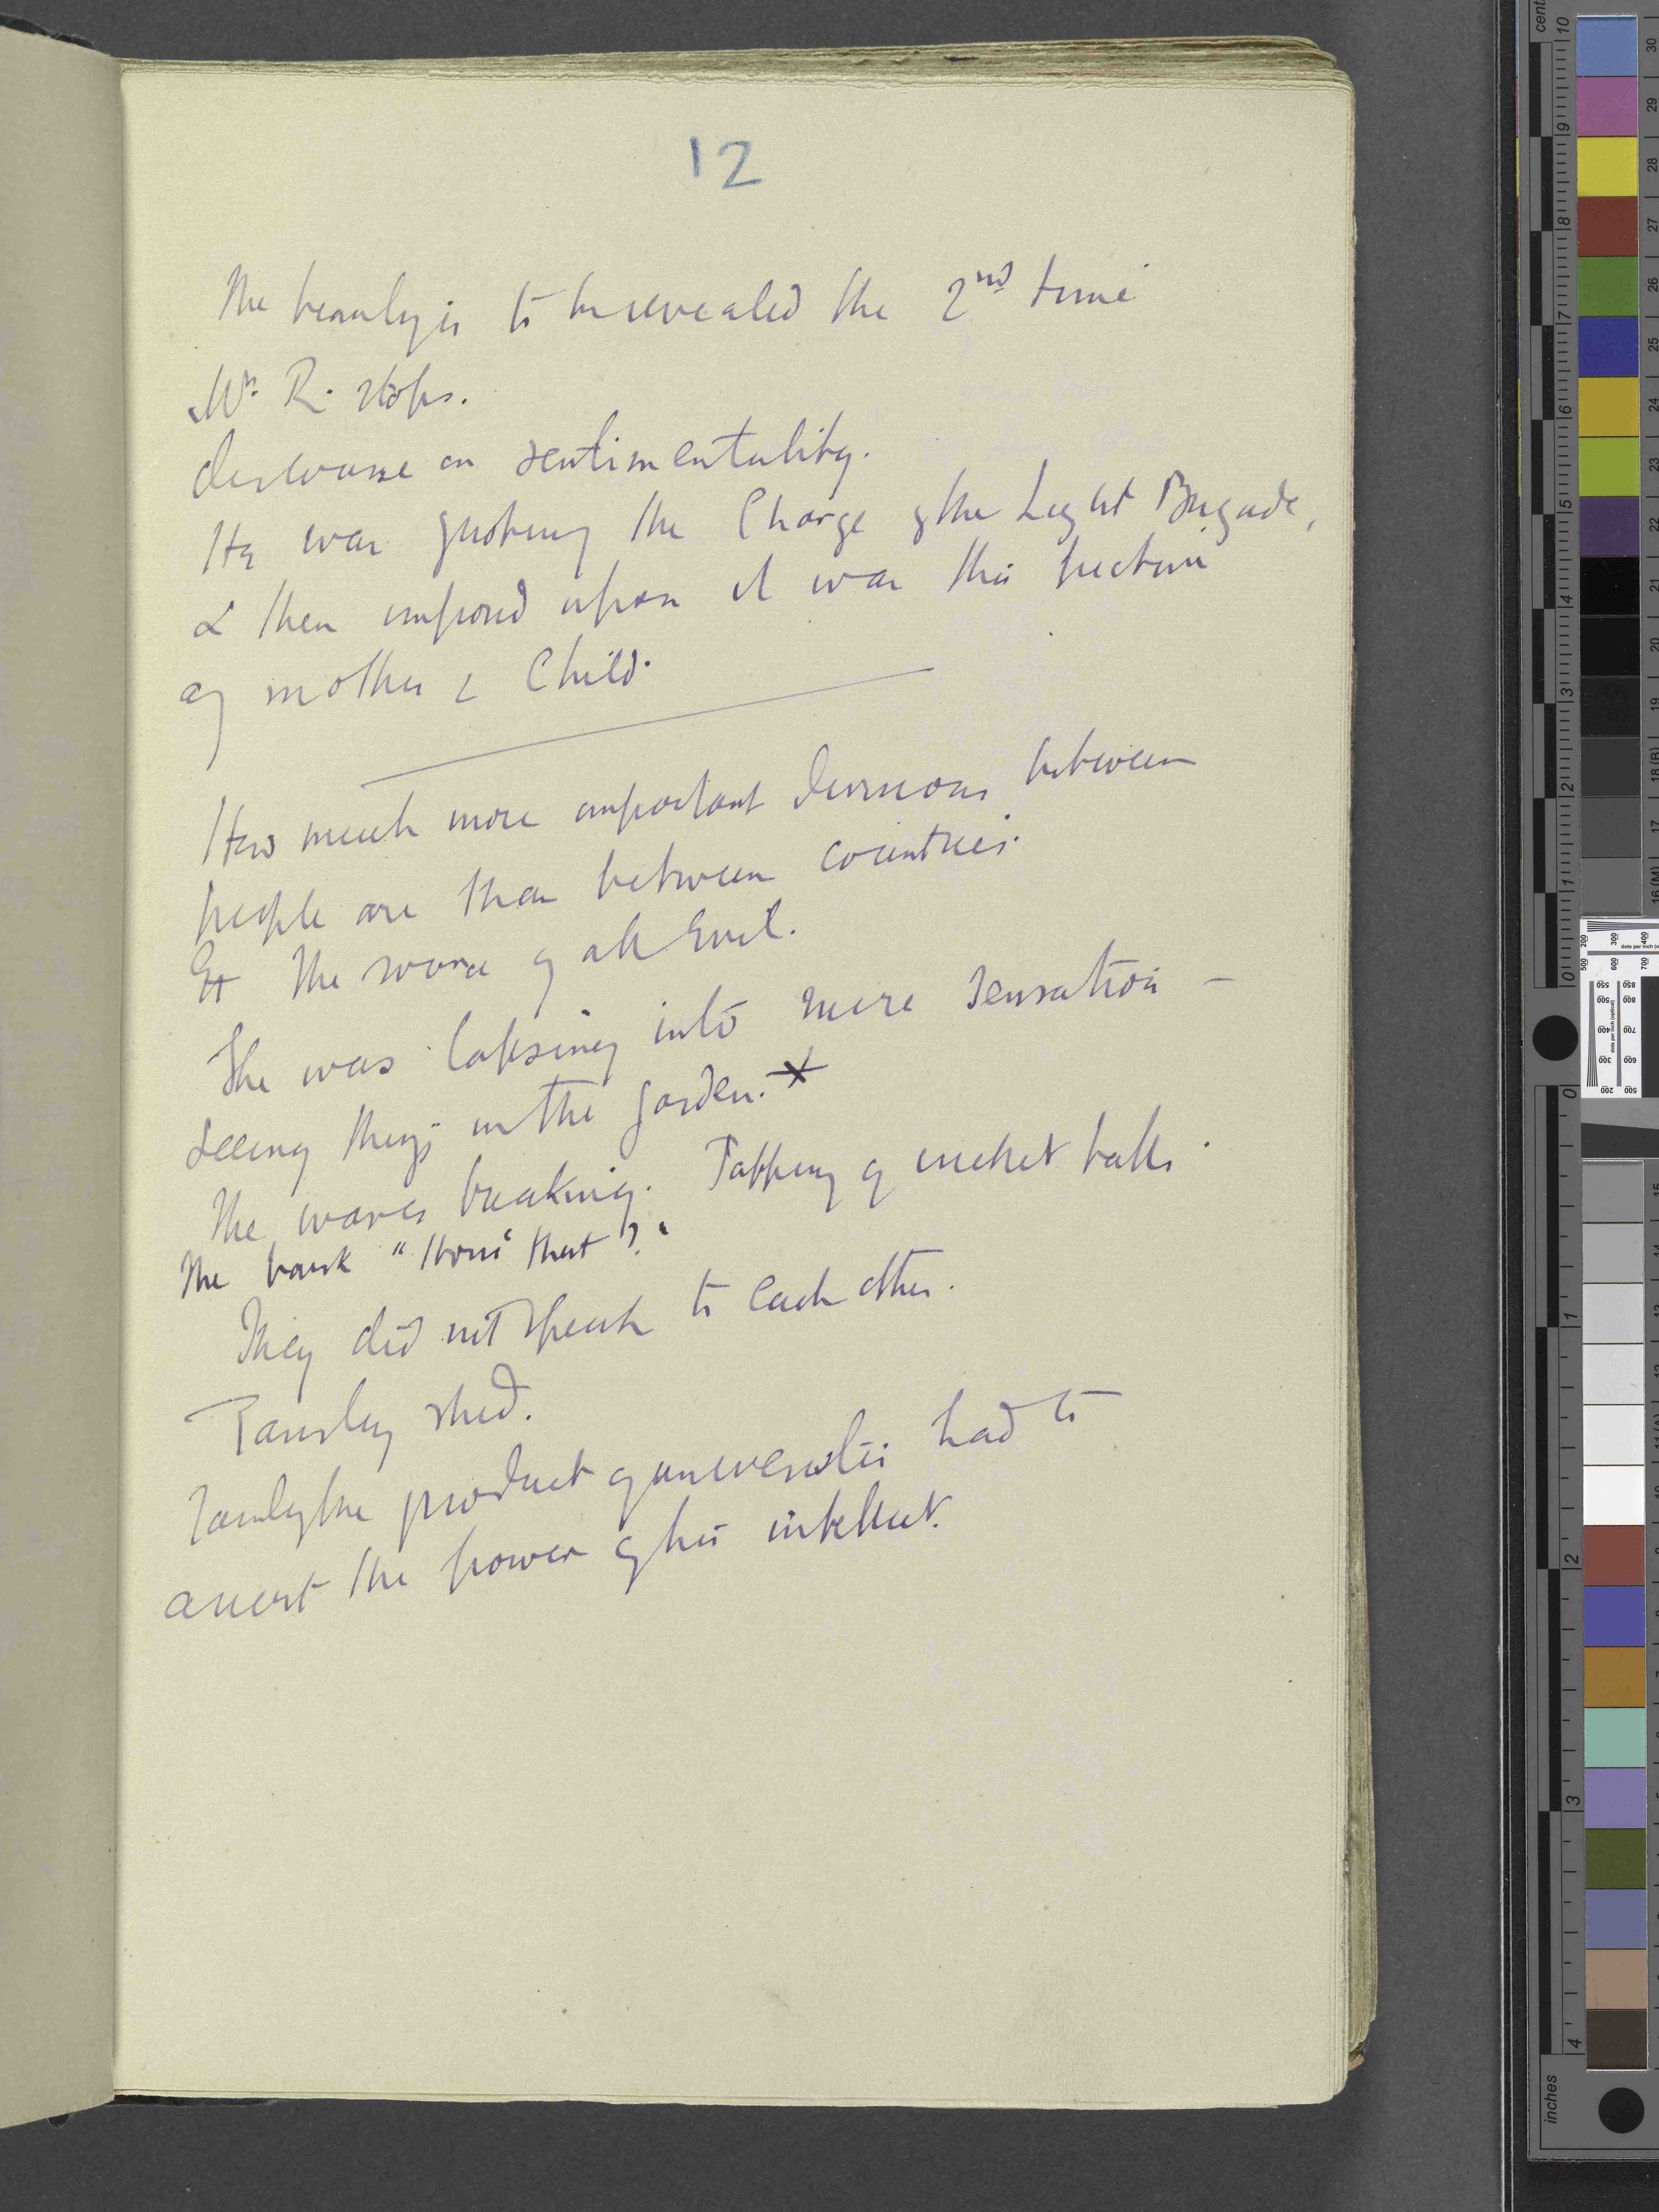 12
The beauty is to be revealed the 2nd time
Mr. R. stops.
discourse on sentimentality.
He was quoting the Charge of the Light Brigade,
& then imposed upon it was this picture
of mother & Child.
How much more important divisions between
people are than between countries.
The source of all evil.
She was lapsing into mere sensation –
seeing things in the garden. X
The waves breaking. Tapping of cricket balls.
The bark "Hows that?"
They did not speak to each other.
Tansley shed.
Tansley the product of universities had to
assert the power of his intellect.